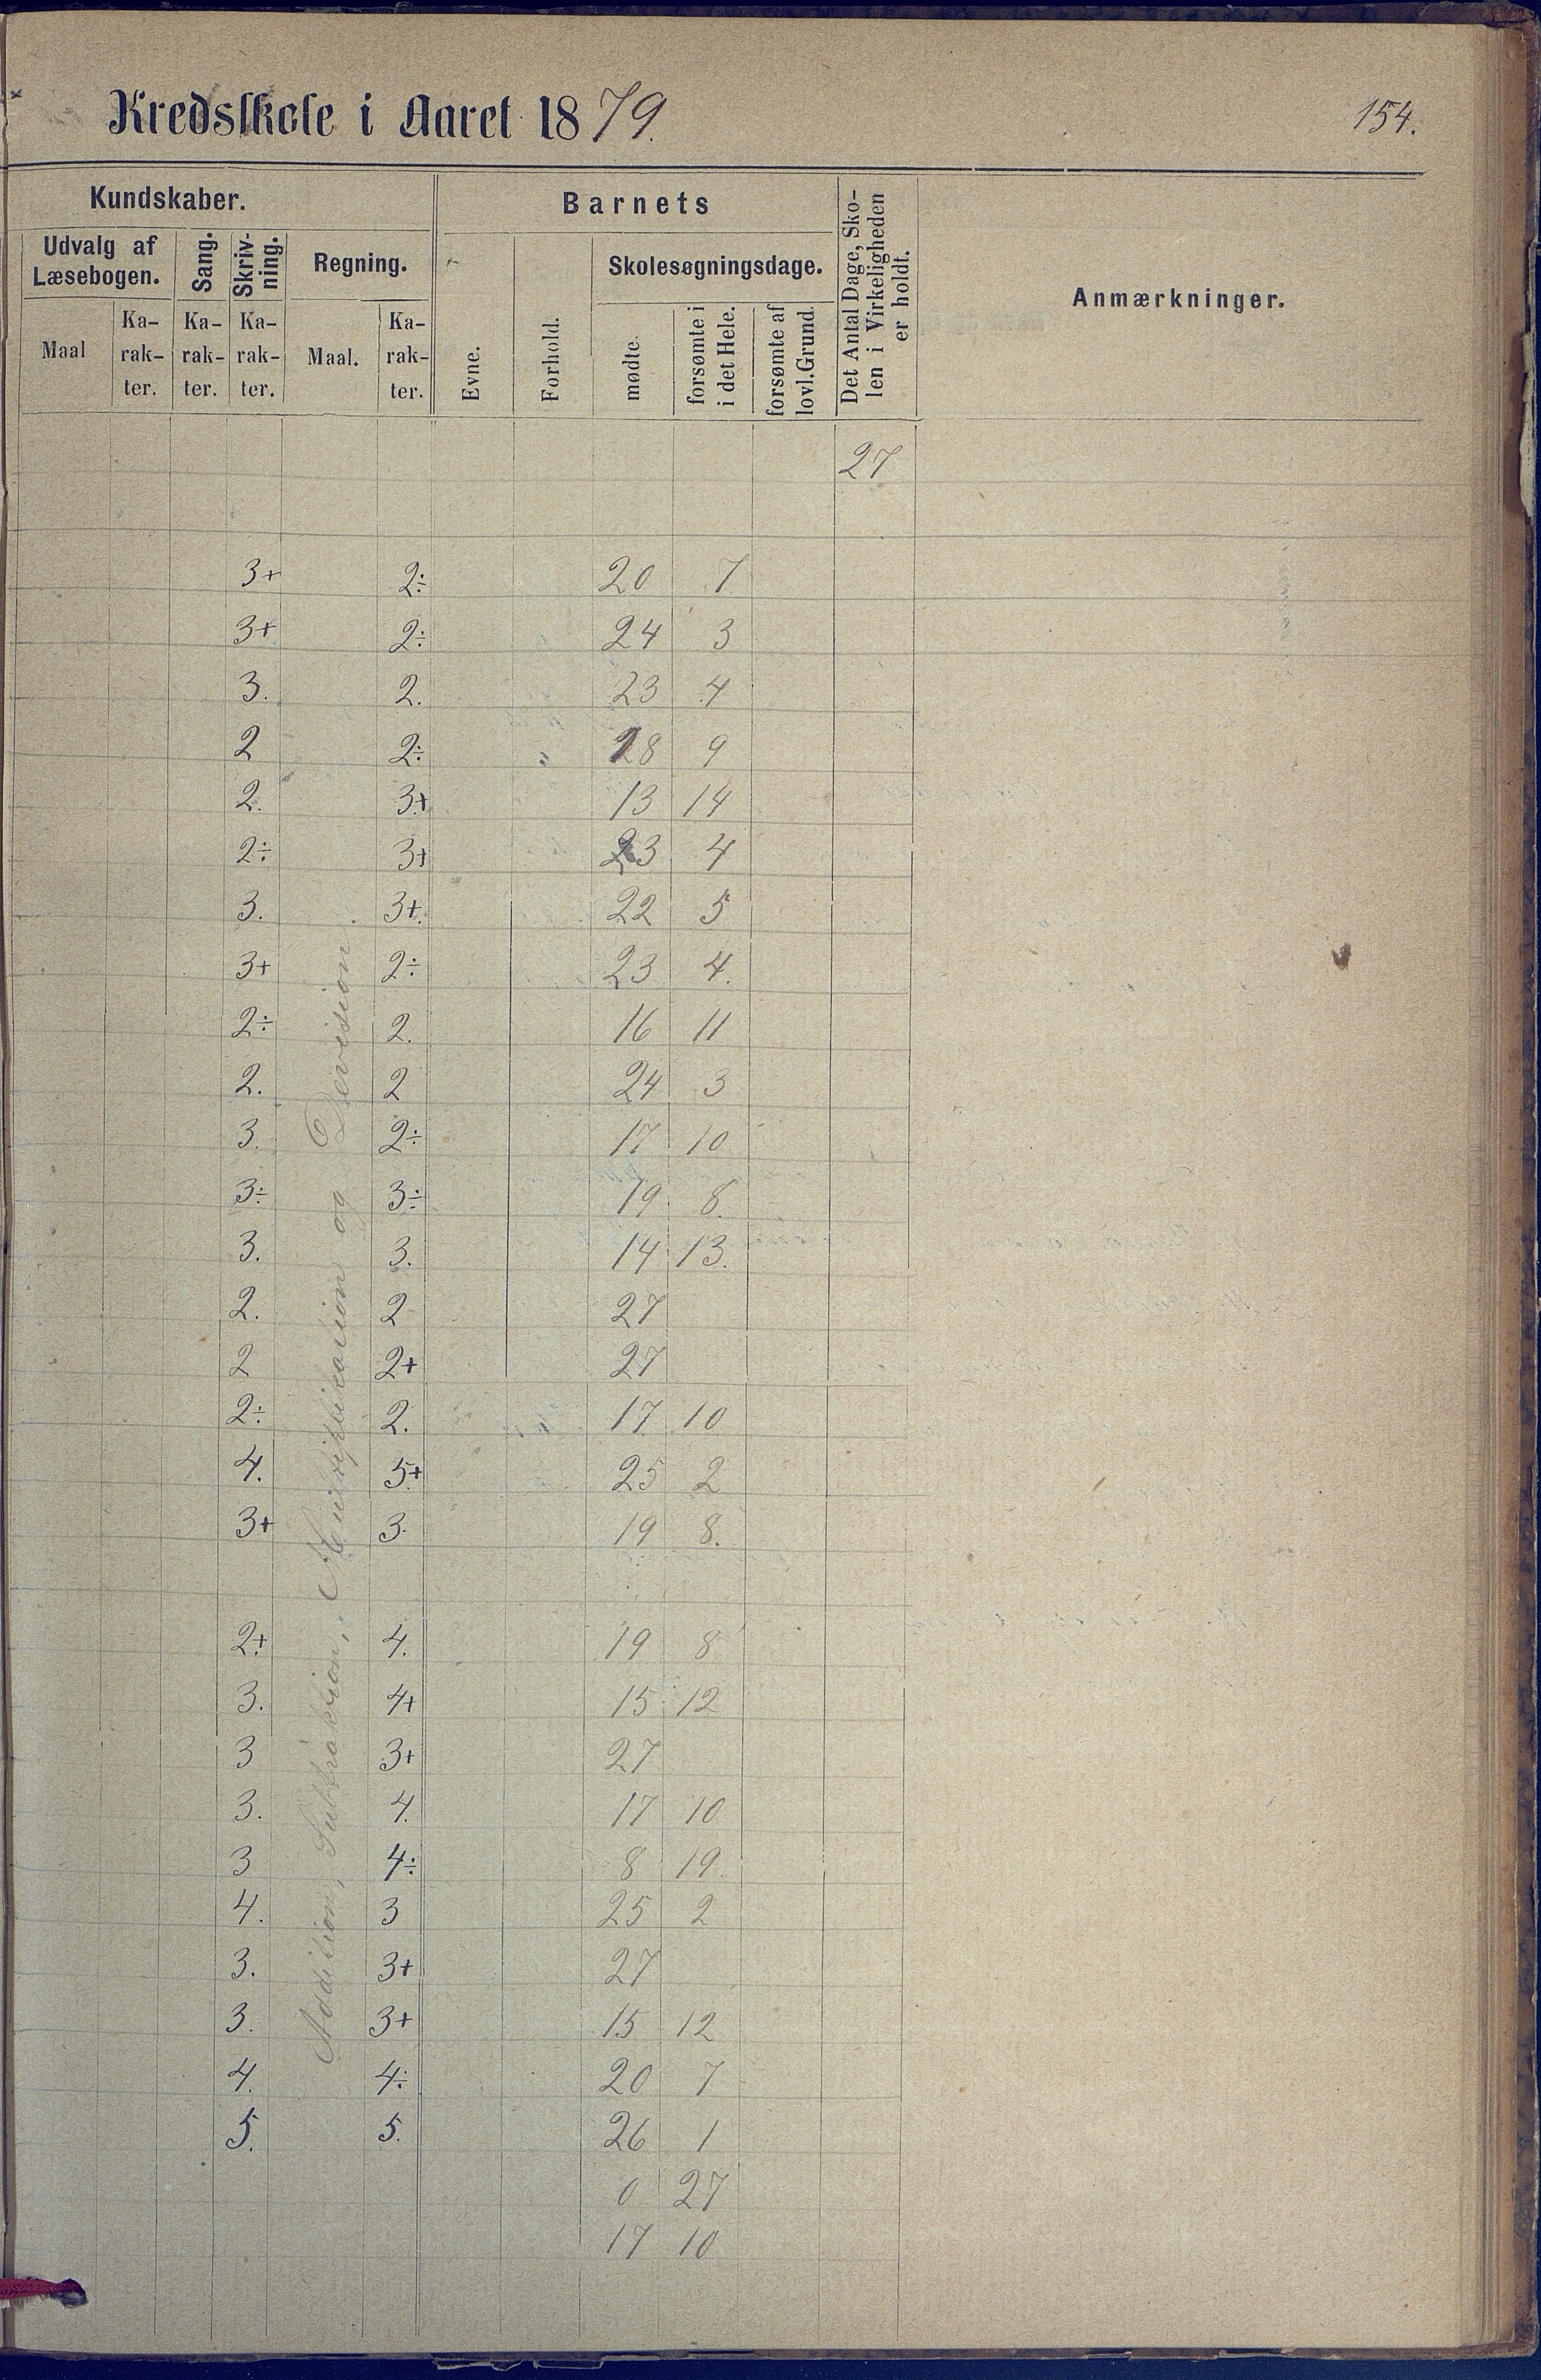 Kredsskole i Aaret 1879. 154.
Kundskaber. Barnets Det Antal Dage, Sko-
len i Virkeligheden
er holdt. Anmærkninger.
Udvalg af
Læsebogen. Sang. Skriv-
ning. Regning. Skolesøgningsdage.
Maal Ka-
rak-
ter. Ka-
rak-
ter. Ka-
rak-
ter. Maal. Ka-
rak-
ter. Evne. Forhold. mødte. forsømte i
i det Hele. forsømte af
lovl. Grund.
27
3+ 2÷ 20 7
3+ 2÷ 24 3
3. 2. 23 4
2 2÷ 18 9
2. 3+ 13 14
2÷ 3+ 23 4
3. 3+. 22 5
3+ 2÷ 23 4.
2÷ 2. 16 11
2. 2 24 3
3. 2÷ 17 10
3÷ 3÷ 19 8.
3. 3. 14 13.
2. 2 27
2 2+ 27
2÷ 2. 17 10
4. 5+ 25 2
3+ 3. 19 8.
Addition, Subtraktion, Multiplication og Devision.
2+ 4. 19 8
3. 4+ 15 12
3 3+ 27
3. 4. 17 10
3 4÷ 8 19.
4. 3 25 2
3. 3+ 27
3. 3+ 15 12
4. 4÷ 20 7
5. 5. 26 1
0 27
17 10